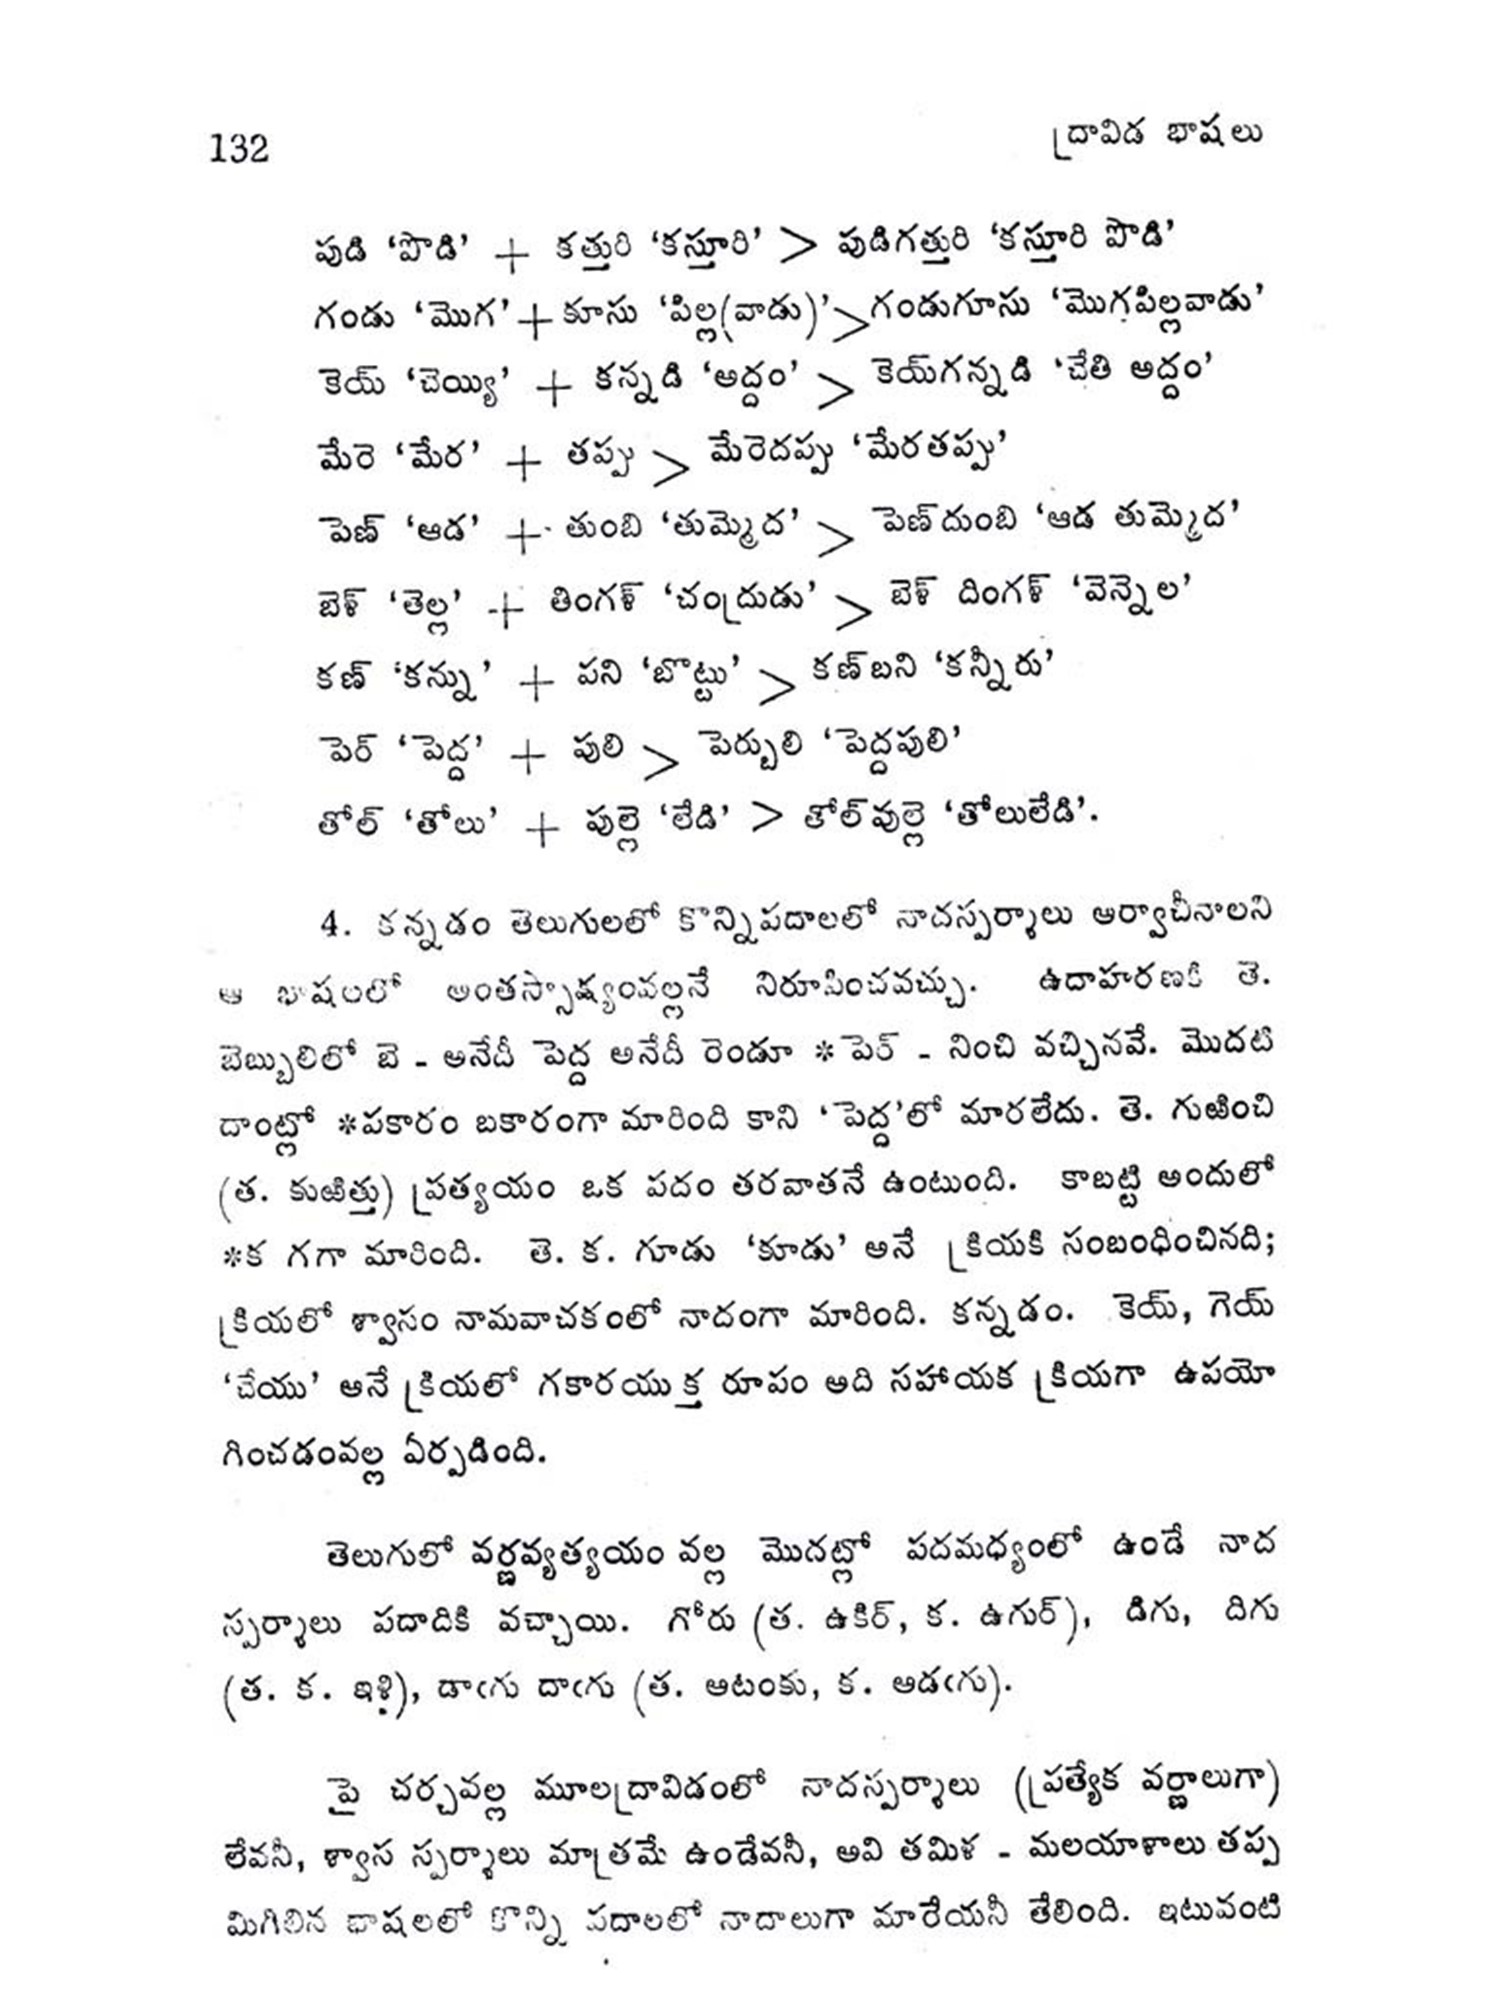 132 ద్రావిడ భాషలు
పుడి ‘పొడి’ + కత్తురి ‘కస్తూరి’ > పుడిగత్తురి ‘కస్తూరి పొడి’
గండు ‘మొగ’ + కూసు ‘పిల్ల(వాడు)’ > గండుగూసు ‘మొగపిల్లవాడు’
కెయ్ ‘చెయ్యి’ + కన్నడి ‘అద్దం’ > కెయ్‌గన్నడి ‘చేతి అద్దం’
మేరె ‘మేర’ + తప్పు > మేరెదప్పు ‘మేరతప్పు’
పెణ్ ‘ఆడ’ + తుంబి ‘తుమ్మెద’ > పెణ్‌దుంబి ‘ఆడ తుమ్మెద’
బెళ్ ‘తెల్ల’ + తింగళ్ ‘చంద్రుడు’ > బెళ్ దింగళ్ ‘వెన్నెల’
కణ్ ‘కన్ను’ + పని ‘బొట్టు’ > కణ్‌బని ‘కన్నీరు’
పెర్ ‘పెద్ద’ + పులి > పెర్బులి ‘పెద్దపులి’
తోల్ ‘తోలు’ + పుల్లె ‘లేడి’ > తోల్‌వుల్లె ‘తోలులేడి’.
4. కన్నడం తెలుగులలో కొన్నిపదాలలో నాదస్పర్శాలు ఆర్వాచీనాలని
ఆ భాషలలో అంతస్సాక్ష్యంవల్లనే నిరూపించవచ్చు. ఉదాహరణకి తె.
బెబ్బులిలో బె - అనేదీ పెద్ద అనేదీ రెండూ *పెర్ - నించి వచ్చినవే. మొదటి
దాంట్లో *పకారం బకారంగా మారింది కాని ‘పెద్ద’లో మారలేదు. తె. గుఱించి
(త. కుఱిత్తు) ప్రత్యయం ఒక పదం తరవాతనే ఉంటుంది. కాబట్టి అందులో
*క గగా మారింది. తె. క. గూడు ‘కూడు’ అనే క్రియకి సంబంధించినది;
క్రియలో శ్వాసం నామవాచకంలో నాదంగా మారింది. కన్నడం. కెయ్, గెయ్
‘చేయు’ అనే క్రియలో గకారయుక్త రూపం అది సహాయక క్రియగా ఉపయో
గించడంవల్ల ఏర్పడింది.
తెలుగులో వర్ణవ్యత్యయం వల్ల మొదట్లో పదమధ్యంలో ఉండే నాద
స్పర్శాలు పదాదికి వచ్చాయి. గోరు (త. ఉకిర్, క. ఉగుర్), డిగు, దిగు
(త. క. ఇఴి), డాఁగు దాఁగు (త. అటంకు, క. అడఁగు).
పై చర్చవల్ల మూలద్రావిడంలో నాదస్పర్శాలు (ప్రత్యేక వర్ణాలుగా)
లేవనీ, శ్వాస స్పర్శాలు మాత్రమే ఉండేవనీ, అవి తమిళ - మలయాళాలు తప్ప
మిగిలిన భాషలలో కొన్ని పదాలలో నాదాలుగా మారేయనీ తేలింది. ఇటువంటి